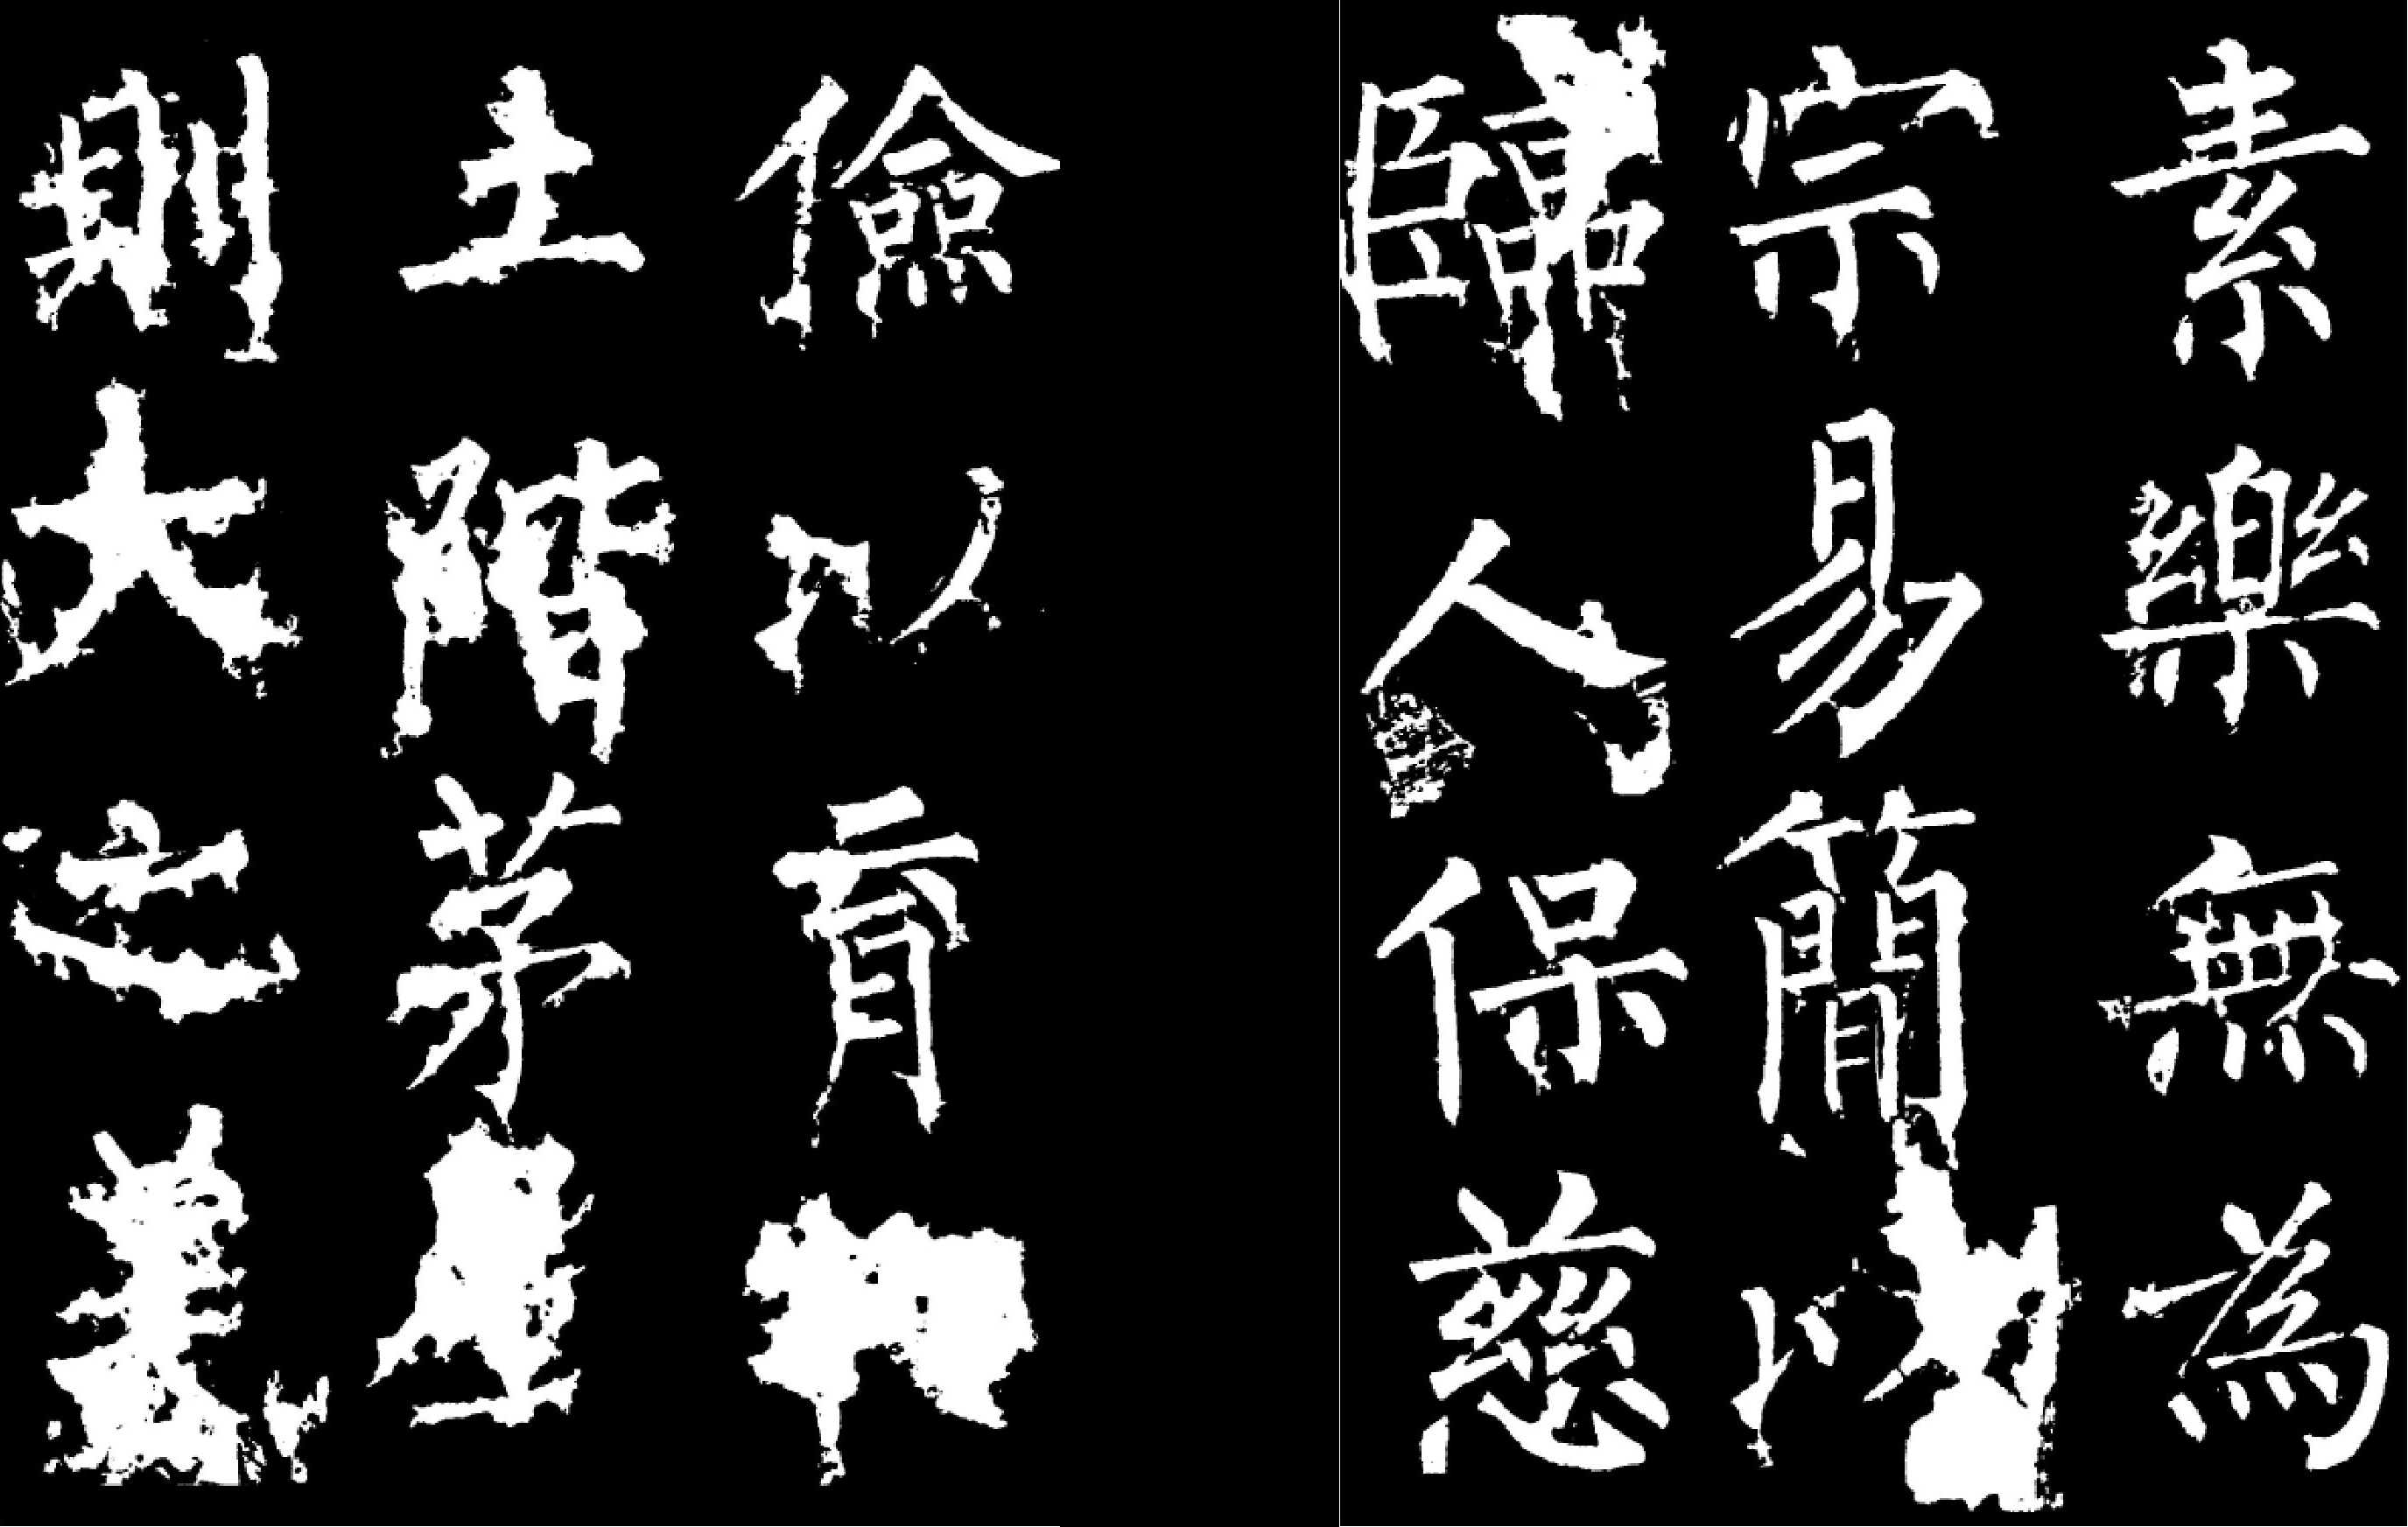 素樂無為
宗易簡以
臨人保慈
儉以育
土階茅屋
則大之美